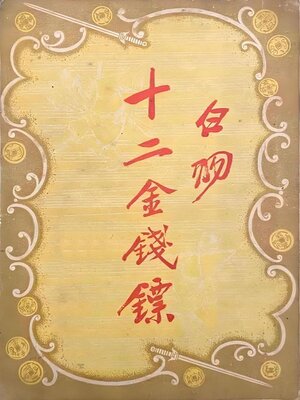 白羽
十二金錢鏢